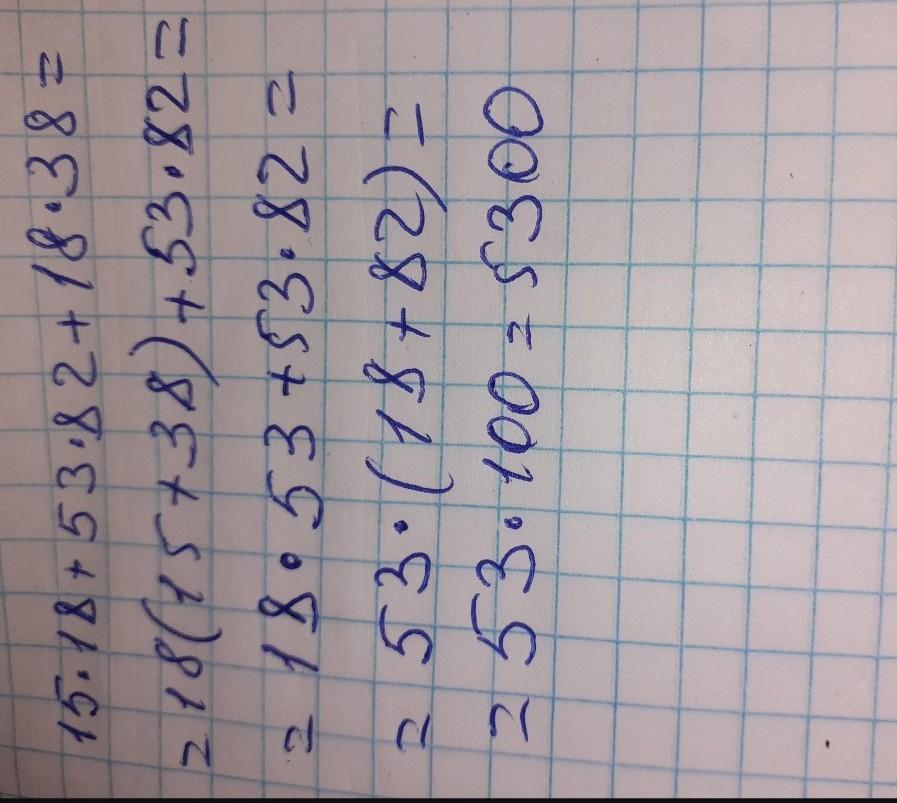 15·18+53·82+18·38=
=18(15+38)+53·82=
=18·53+53·82=
=53·(18+82)=
=53·100=5300